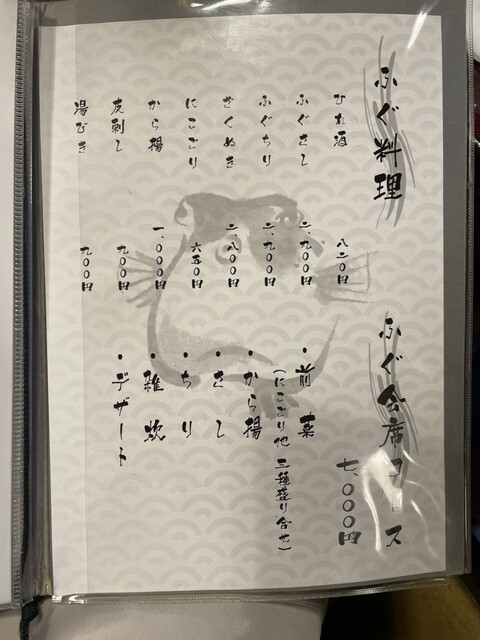 ふぐ料理
ひれ酒 八二〇円
ふぐさし 二、九〇〇円
ふぐちり 二、九〇〇円
ざくぬき 二、八〇〇円
にこごり 六五〇円
から揚 一、〇〇〇円
皮刺し 九〇〇円
湯びき 九〇〇円
ふぐ会席コース
七、〇〇〇円
・前菜
(にこごり他 三種盛り合せ)
・から揚
・さし
・ちり
・雑炊
・デザート